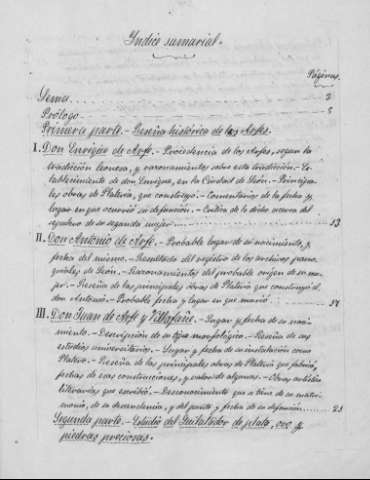 Indice sumarial.
Páginas.
Lema 2
Prólogo 5
Primera parte.- Reseña histórica de los Arfes.
I. Don Enrique de Arfe.- Procedencia de los Arfes, segun la
tradicion leonesa, y razonamientos sobre esta tradicion.- Es-
tablecimiento de don Enrique, en la Ciudad de León.- Principa-
les obras de Plateria, que construyó.- Comentarios de la fecha y
lugar en que ocurrió su defunción.- Critica de lo dicho acerca del
de su segunda mujer 13
II. Don Antonio de Arfe.- Probable lugar de su nacimiento, y
fecha del mismo.- Resultado del registro de los archivos parro-
quiales de León.- Razonamientos del probable origen de su mu-
jer.- Reseña de las principales obras de Plateria que construyó d.
don Antonio.- Probable fecha y lugar en que murió 17
III. Don Juan de Arfe y Villafañe.- Lugar y fecha de su naci-
miento.- Descripción de su tipo morfológico.- Reseña de sus
estudios universitarios.- Lugar y fecha de su instalación como
Platero.- Reseña de las principales obras de Plateria que fabricó,
fechas de sus construcciones, y valor de algunas.- Obras
literarias que escribió.- Desconocimiento que se tiene de su matri-
monio, de su descendencia, y del punto y fecha de su defunción 21
Segunda parte.- Estudio del Quilatador de plata, oro y
piedras preciosas.